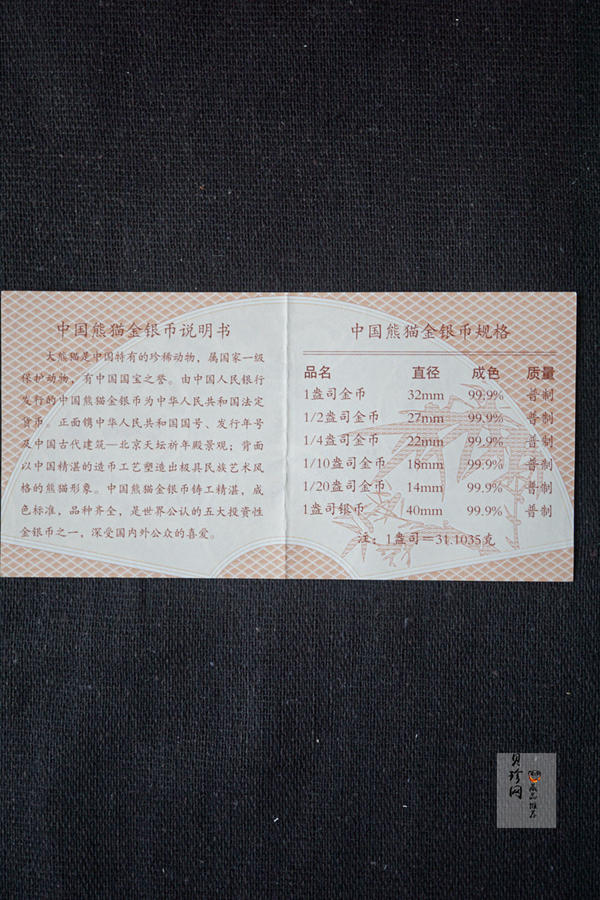 中国熊猫金银币说明书
大熊猫是中国特有的珍稀动物，属国家一级
保护动物，有中国国宝之誉。由中国人民银行
发行的中国熊猫金银币为中华人民共和国法定
货币。正面镌中华人民共和国国号、发行年号
及中国古代建筑—北京天坛祈年殿景观；背面
以中国精湛的造币工艺塑造出极具民族艺术风
格的熊猫形象。中国熊猫金银币铸工精湛，成
色标准，品种齐全，是世界公认的五大投资性
金银币之一，深受国内外公众的喜爱。
中国熊猫金银币规格
品名 直径 成色 质量
1盎司金币 32mm 99.9% 普制
1/2盎司金币 27mm 99.9% 普制
1/4盎司金币 22mm 99.9% 普制
1/10盎司金币 18mm 99.9% 普制
1/20盎司金币 14mm 99.9% 普制
1盎司银币 40mm 99.9% 普制
注：1盎司=31.1035克
贝珍网
藏品推荐